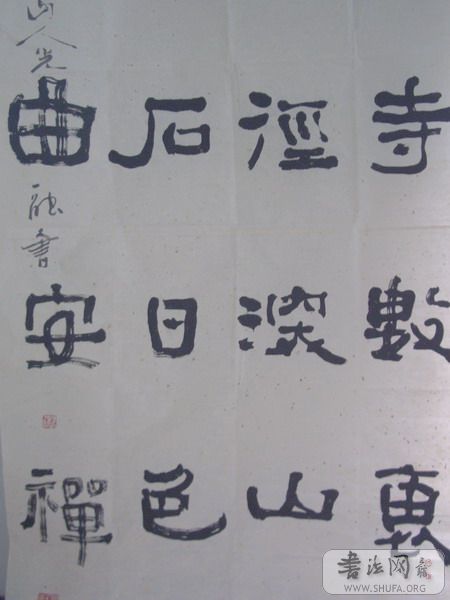 寺數裏
徑深山
石日色
曲安禪
山人光融書
書法网
WWW.SHUFA.ORG